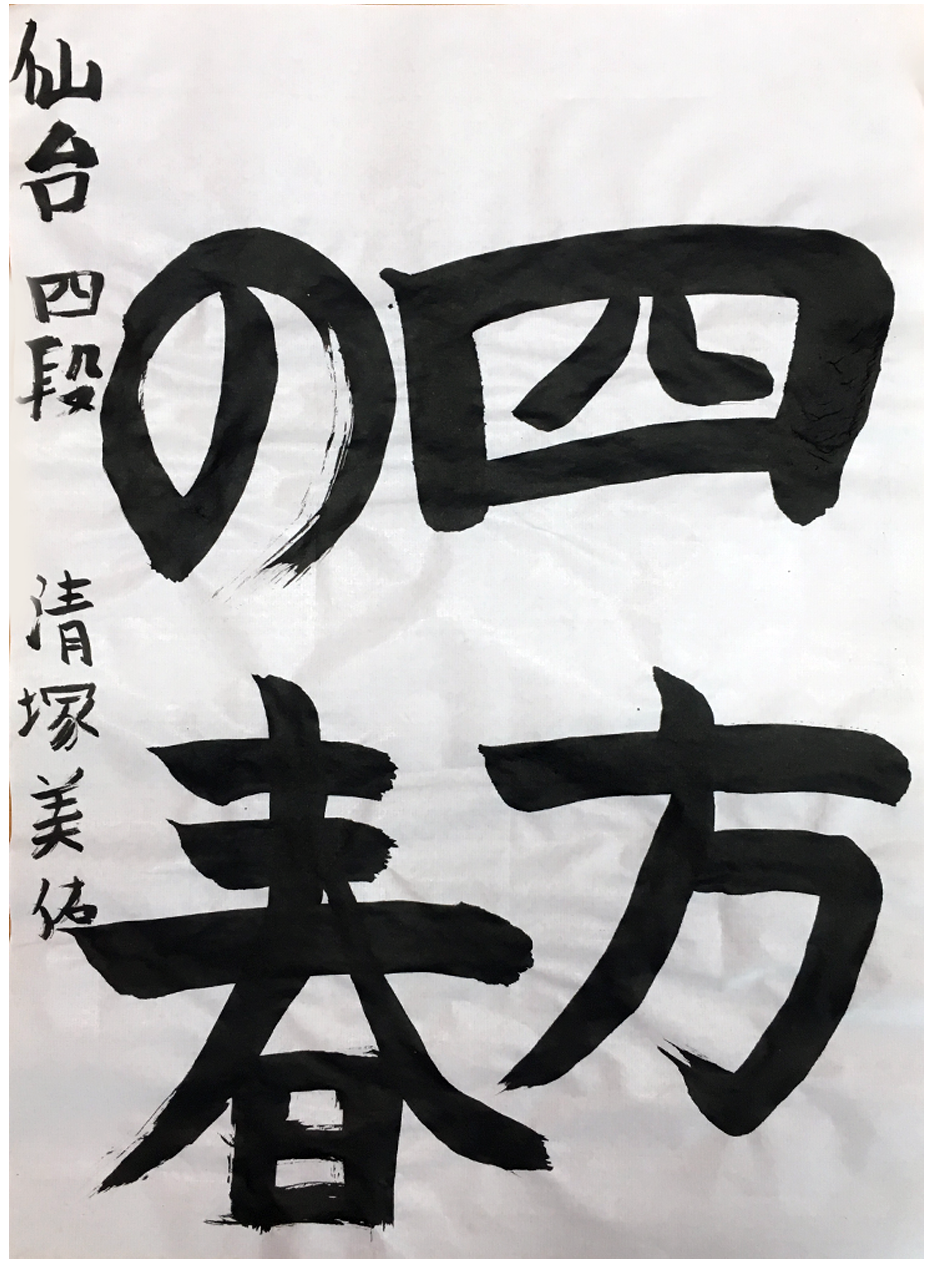 四方
の春
仙台 四段 清塚美佑